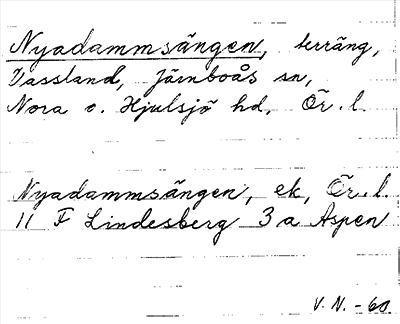 Nyadammsängen, terräng,
Vassland, Järnboås sn,
Nora o. Hjulsjö hd, Ör. l.
Nyadammsängen, ek, Ör. l.
11 F Lindesberg 3 a Aspen
V. N. - 60